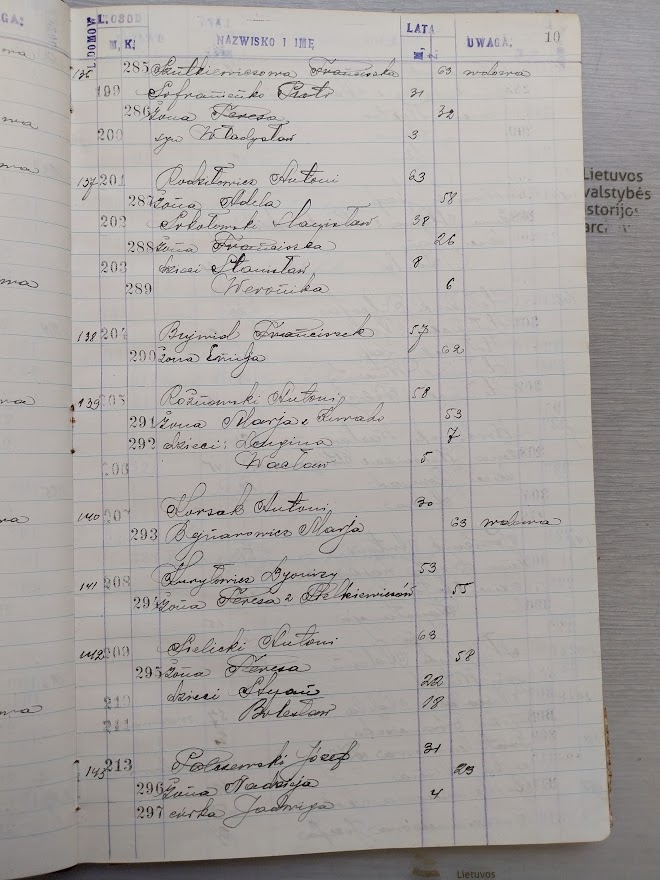 L. DOMÓW L. OSÓB NAZWISKO I IMĘ LATA UWAGA. 10
M. K. M. K.
136 285 Szutkiewiczowa Franciszka 63 wdowa
199 Piotr 31
286 żona Teresa 32
200 syn Władysław 3
137 201 Antoni 63
287 żona Adela 58
202 Sokołowski 38
288 żona Franciszka 26
203 dzieci Stanisław 8
289 Weronika 6
138 204 Franciszek 57
290 żona Emilja 62
139 205 Rożnowski Antoni 58
291 żona Marja z 53
292 dzieci: Longina 7
206 Wacław 5
140 207 Korsak Antoni 30
293 Bejnarowicz Marja 63 wdowa
141 208 Kuryłowicz 53
294 żona Teresa z 55
142 209 Antoni 63
295 żona Teresa 58
210 dzieci 22
211 Bolesław 18
143 213 Józef 31
296 żona Nadzieja 23
297 córka Jadwiga 4
Lietuvos
valstybės
istorijos
Lietuvos